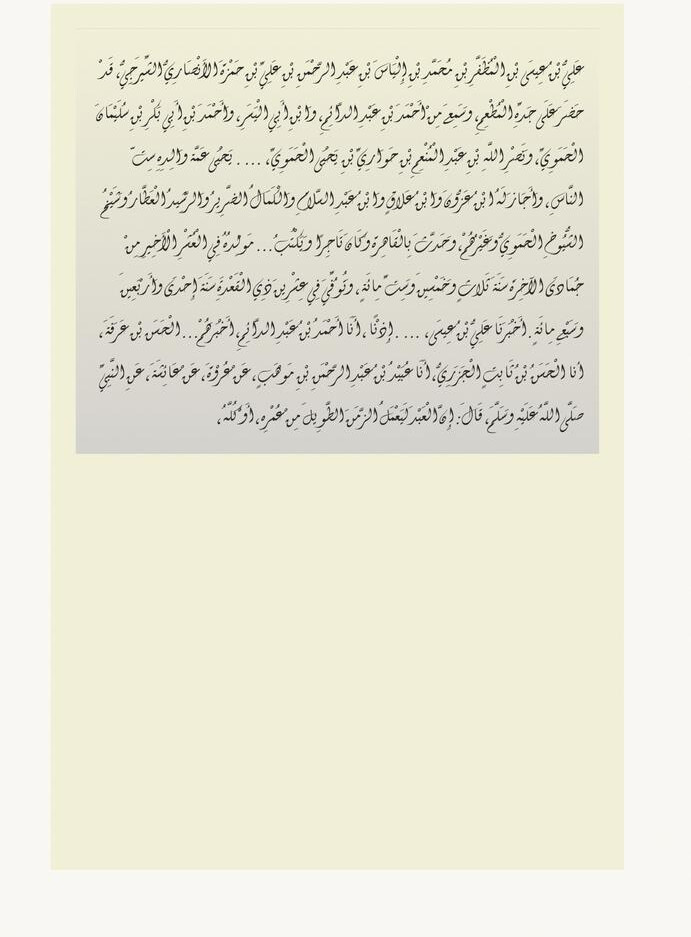 عَلِيُّ بْنُ عِيسَى بْنِ الْمُظَفَّرِ بْنِ مُحَمَّدِ بْنِ إِلْيَاسَ بْنِ عَبْدِ الرَّحْمَنِ بْنِ عَلِيِّ بْنِ حَمْزَةَ الأَنْصَارِيُّ الشِّيرَجِيُّ، قَدْ
حَضَرَ عَلَى جَدِّهِ الْمُطْعِمِ، وَسَمِعَ مِنْ أَحْمَدَ بْنِ عَبْدِ الدَّائِمِ، وَابْنِ أَبِي الْيَسَرِ، وَأَحْمَدَ بْنِ أَبِي بَكْرِ بْنِ سُلَيْمَانَ
الْحَمَوِيِّ، وَنَصْرِ اللَّهِ بْنِ عَبْدِ الْمُنْعِمِ بْنِ حَوَارِيِّ بْنِ يَحْيَى الْحَمَوِيِّ، .... يَحْيَى عَمَّهُ وَالِدِهِ سِتِّ
النَّاسِ، وَأَجَازَ لَهُ ابْنُ عَزُّونَ وَابْنُ عَلاقٍ وَابْنُ عَبْدِ السَّلامِ وَالْكَمَالُ الضَّرِيرُ وَالرَّشِيدُ الْعَطَّارُ وَشَيْخُ
الشُّيُوخِ الْحَمَوِيُّ وَغَيْرُهُمْ، وَحَدَّثَ بِالْقَاهِرَةِ وَكَانَ تَاجِرًا وَيَكْتُبُ... مَوْلِدُهُ فِي الْعَشْرِ الْأَخِيرِ مِنْ
جُمَادَى الآخِرَةِ سَنَةَ ثَلاثٍ وَخَمْسِينَ وَسِتِّ مِائَةٍ، وَتُوُفِّيَ فِي عِشْرِينَ ذِي الْقَعْدَةِ سَنَةَ إِحْدَى وَأَرْبَعِينَ
وَسَبْعِ مِائَةٍ. أَخْبَرَنَا عَلِيُّ بْنُ عِيسَى، .... إِذْنًا، أَنَا أَحْمَدُ بْنُ عَبْدِ الدَّائِمِ، أَخْبَرَهُمْ... الْحَسَنُ بْنُ عَرَفَةَ،
أنا الْحَسَنُ بْنُ ثَابِتٍ الْجَزَرِيُّ، أَنَا عُبَيْدُ بْنُ عَبْدِ الرَّحْمَنِ بْنِ مَوْهَبٍ، عَنْ عُرْوَةَ، عَنْ عَائِشَةَ، عَنِ النَّبِيِّ
صَلَّى اللَّهُ عَلَيْهِ وَسَلَّمَ، قَالَ: إِنَّ الْعَبْدَ لَيَعْمَلُ الزَّمَنَ الطَّوِيلَ مِنْ عُمُرِهِ، أَوْ كُلَّهُ،